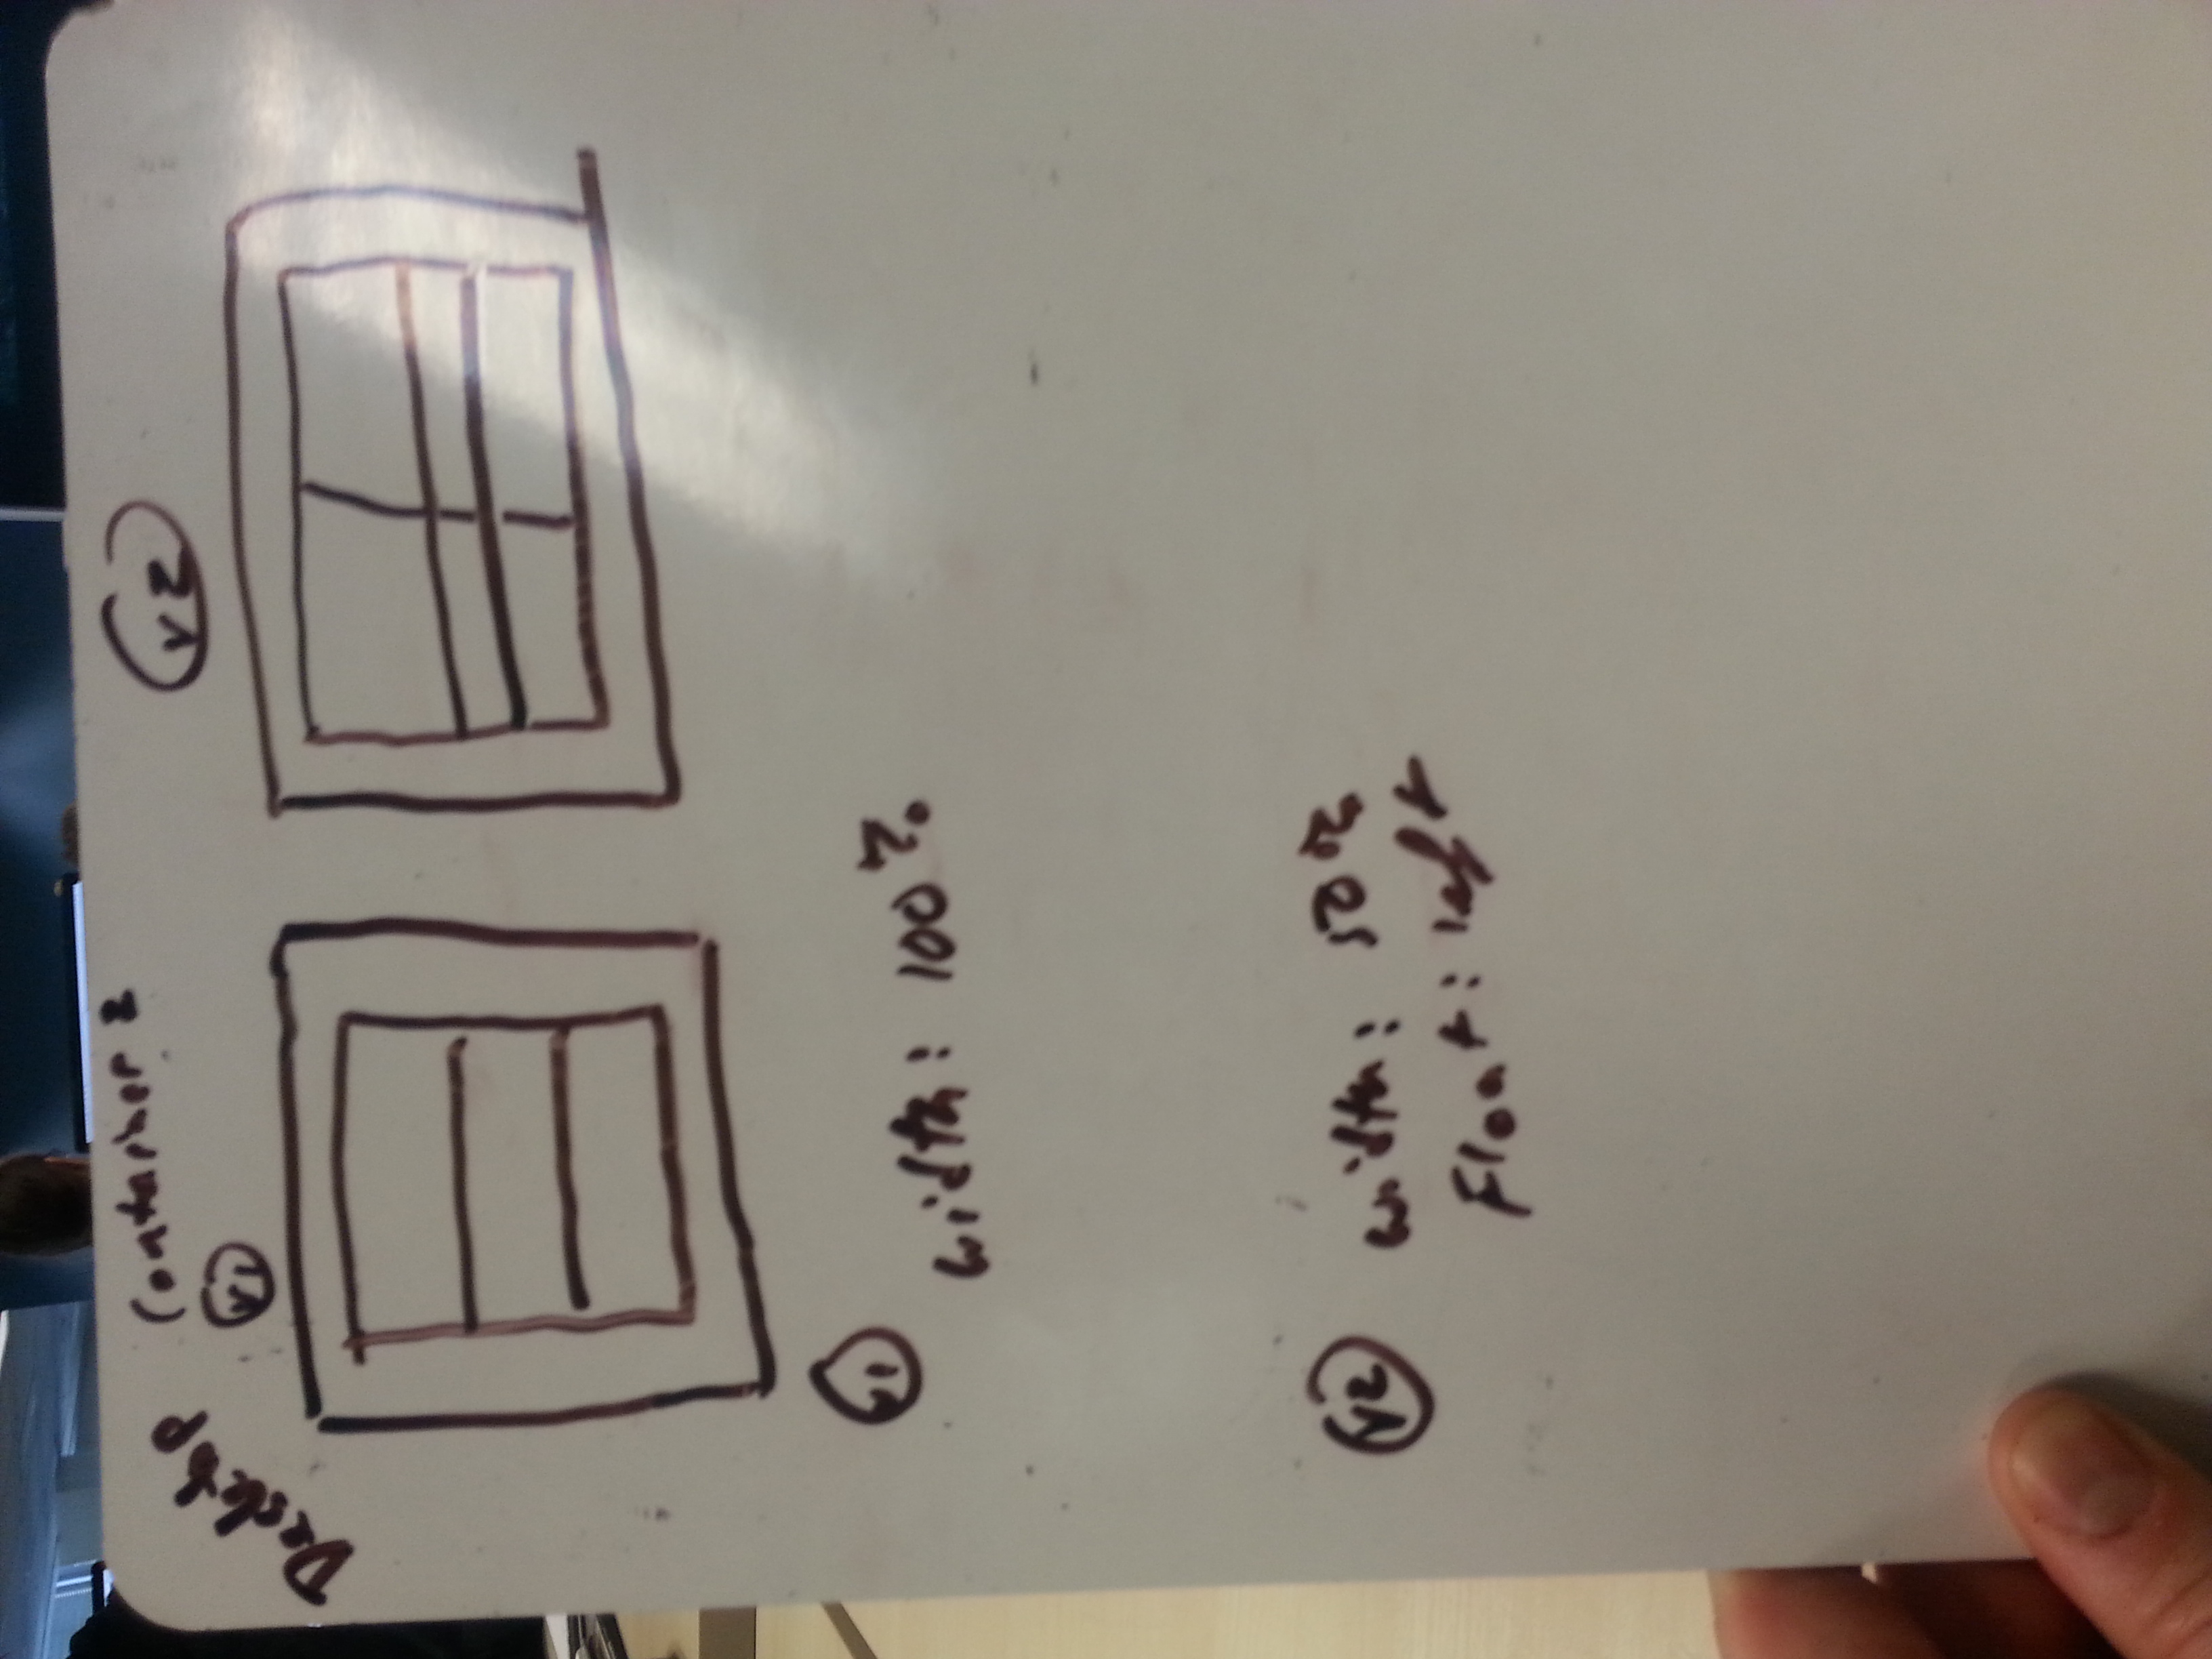 Desktop
Container 2
V1
V2
V1
width: 100%
V2
width: 50%
Float: left